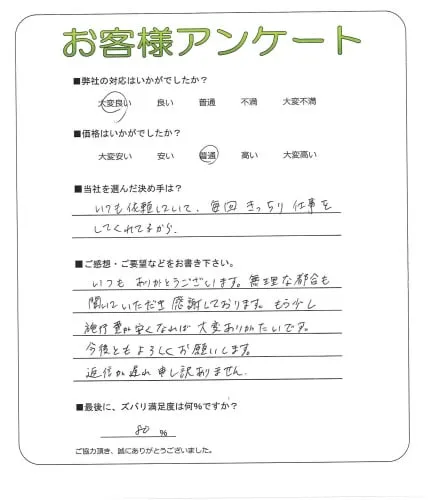 お客様アンケート
■弊社の対応はいかがでしたか？
大変良い 良い 普通 不満 大変不満
■価格はいかがでしたか？
大変安い 安い 普通 高い 大変高い
■当社を選んだ決め手は？
いつも依頼していて、毎回きっちり仕事を
してくれてるから。
■ご感想・ご要望などをお書き下さい。
いつもありがとうございます。無理な都合も
聞いていただき感謝しております。もう少し
施行費が安くなれば大変ありがたいです。
今後ともよろしくお願いします。
返信が遅れ申し訳ありません。
■最後に、ズバリ満足度は何％ですか？
80 %
ご協力頂き、誠にありがとうございました。